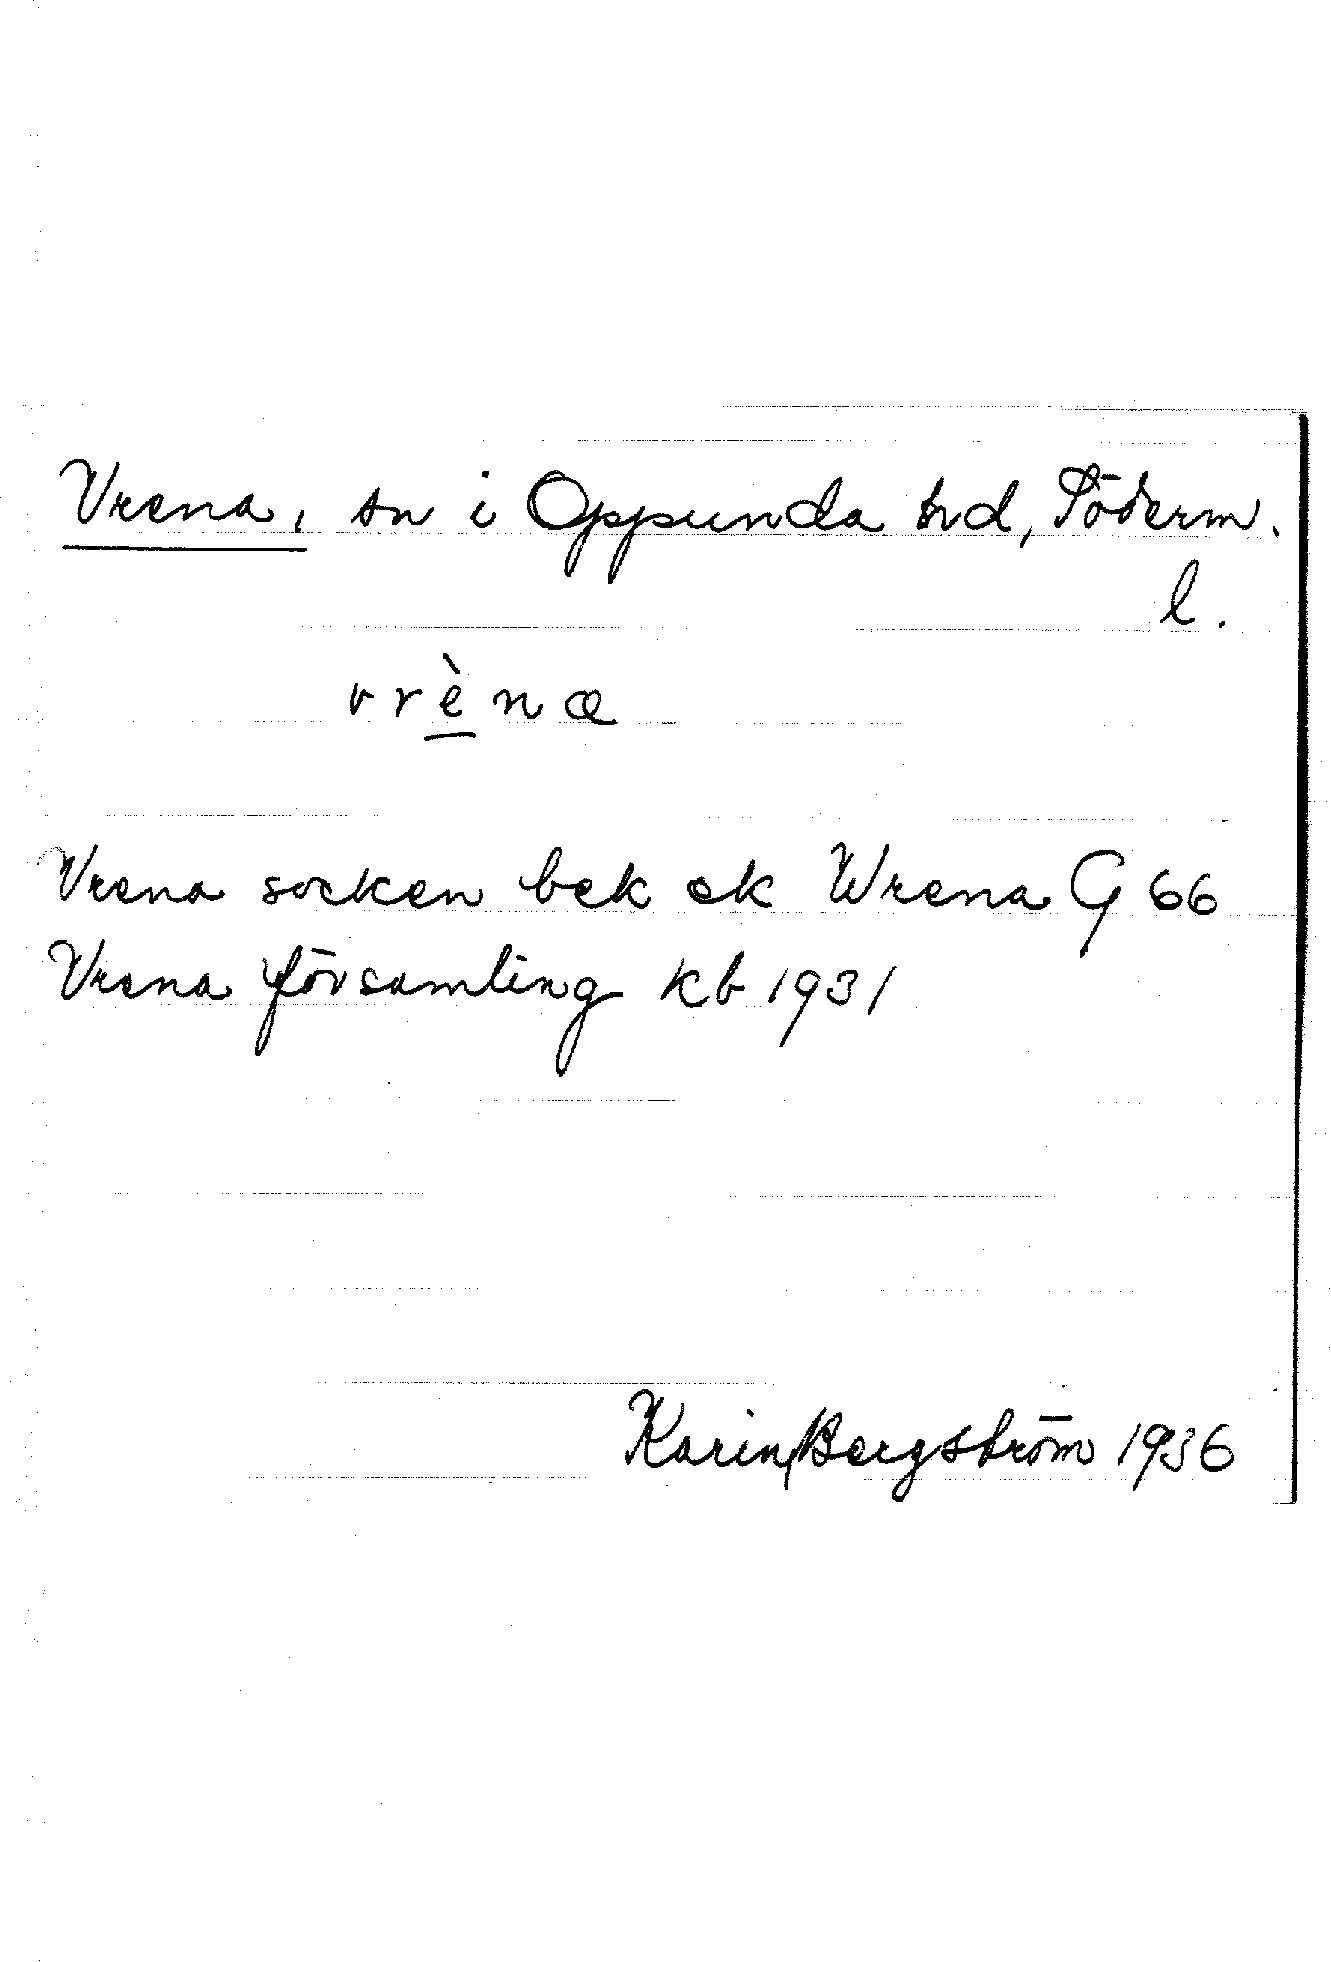 Vrena, sn i Oppunda hd, Söderm.
l.
vrèna
Vrena socken bek ek Wrena G 66
Vrena församling kb 1931
Karin Bergström 1936